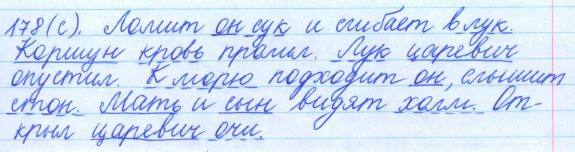 178(с). Ломит он сук и сгибает в лук.
Коршун кровь пролил. Лук царевич
опустил. К морю подходит он, слышит
стон. Мать и сын видят холм. От-
крыл царевич очи.